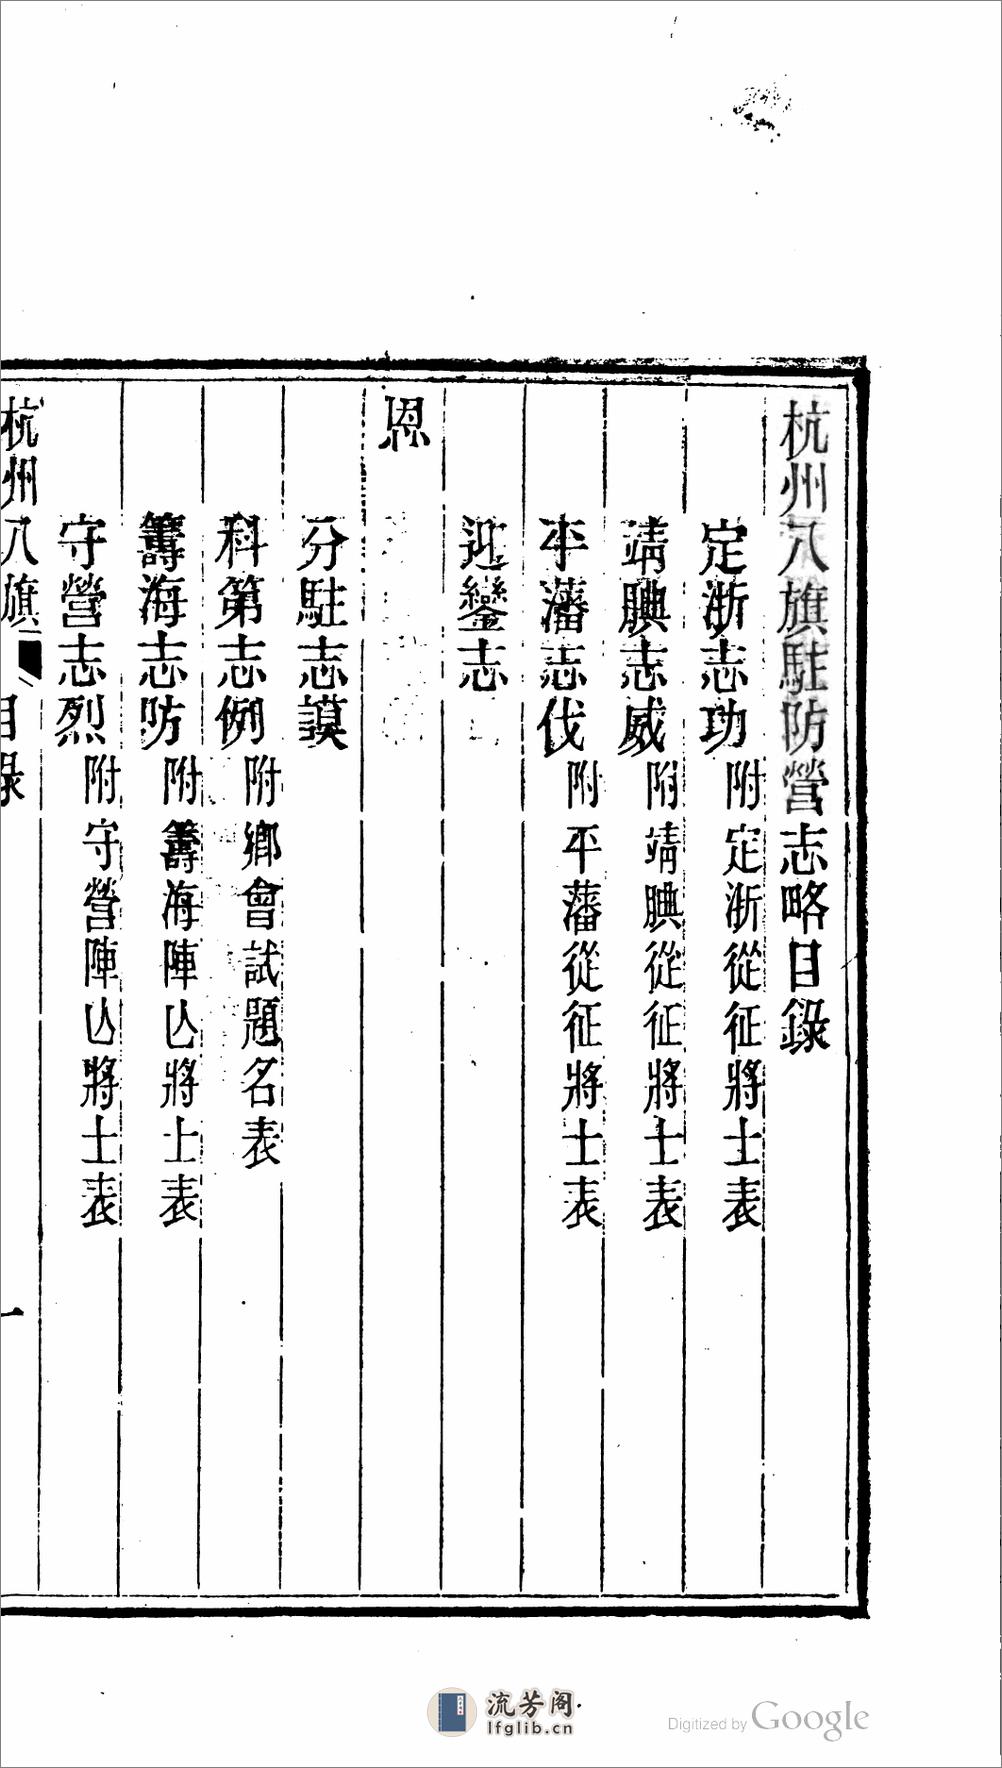 杭州八旗駐防營志略目錄
定浙志功 附定浙從征將士表
靖腆志威 附靖腆從征將士表
平藩志伐 附平藩從征將士表
迎鑾志
恩
分駐志謨
科第志例 附鄉會試題名表
籌海志防 附籌海陣亡將士表
守營志烈 附守營陣亡將士表
杭州八旗 目錄 一
流芳阁
lfglib.cn
Digitized by Google